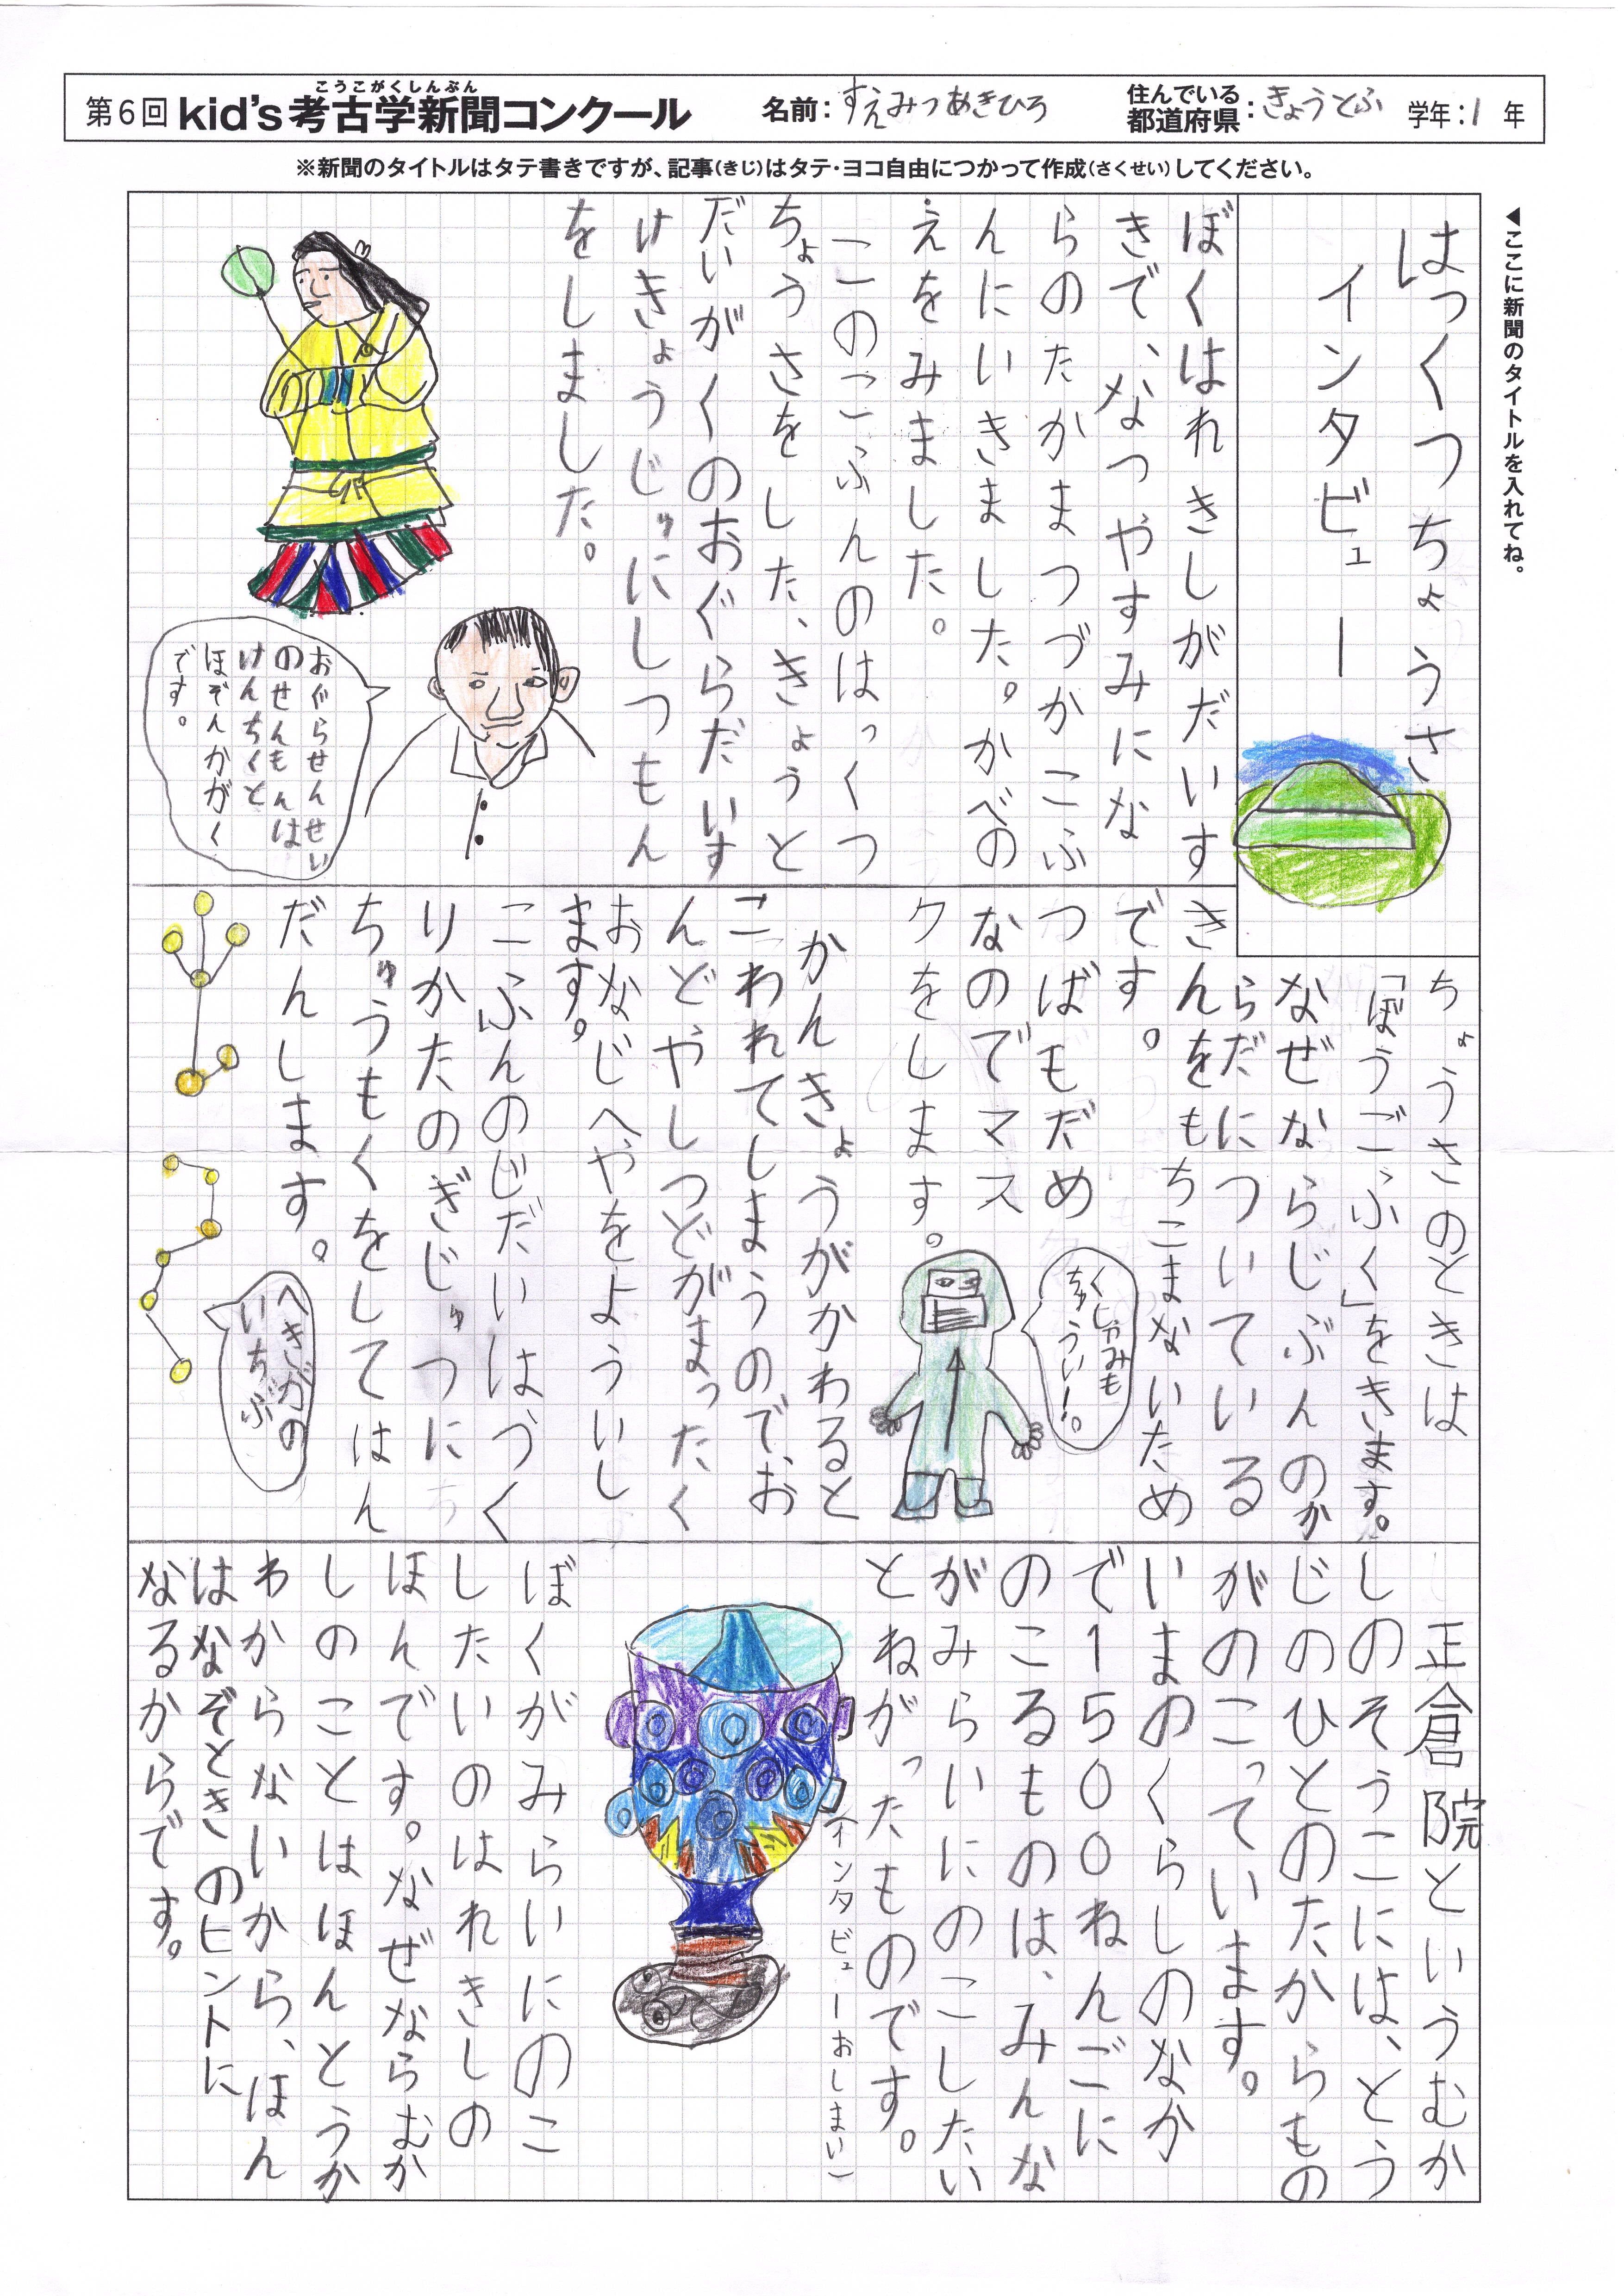 こうこがくしんぶん
第6回 kid's考古学新聞コンクール
名前：すえみつあきひろ
住んでいる都道府県：きょうとふ
学年：1年
※新聞のタイトルはタテ書きですが、記事（きじ）はタテ・ヨコ自由につかって作成（さくせい）してください。
◀ここに新聞のタイトルを入れてね。
はっくつちょうさ
インタビュー
ぼくはれきしがだいす
きで、なつやすみにな
らのたかまつづかこふ
んにいきました。かべの
えをみました。
このこふんのはっくつ
ちょうさをした、きょうと
だいがくのおぐらだいす
けきょうじゅにしつもん
をしました。
おぐらせんせい
のせんもんは
けんちくと
ほぞんかがく
です。
ちょうさのときは
「ぼうごふく」をきます。
なぜならじぶんのか
らだについている
きんをもちこまないため
です。
つばもだめ
なのでマス
クをします。
くしゃみも
ちゅうい！。
かんきょうがかわると
こわれてしまうので、お
んどやしつどがまったく
おなじへやをよういし
ます。
こふんのじだいはつく
りかたのぎじゅつに
ちゅうもくをしてはん
だんします。
へきがの
いちぶ
正倉院というむか
しのそうこには、とう
じのひとのたからもの
がのこっています。
いまのくらしのなか
で1500ねんごに
のこるものは、みんな
がみらいにのこしたい
とねがったものです。
（インタビューおしまい）
ぼくがみらいにのこ
したいのはれきしの
ほんです。なぜならむか
しのことはほんとうか
わからないから、ほん
はなぞときのヒントに
なるからです。